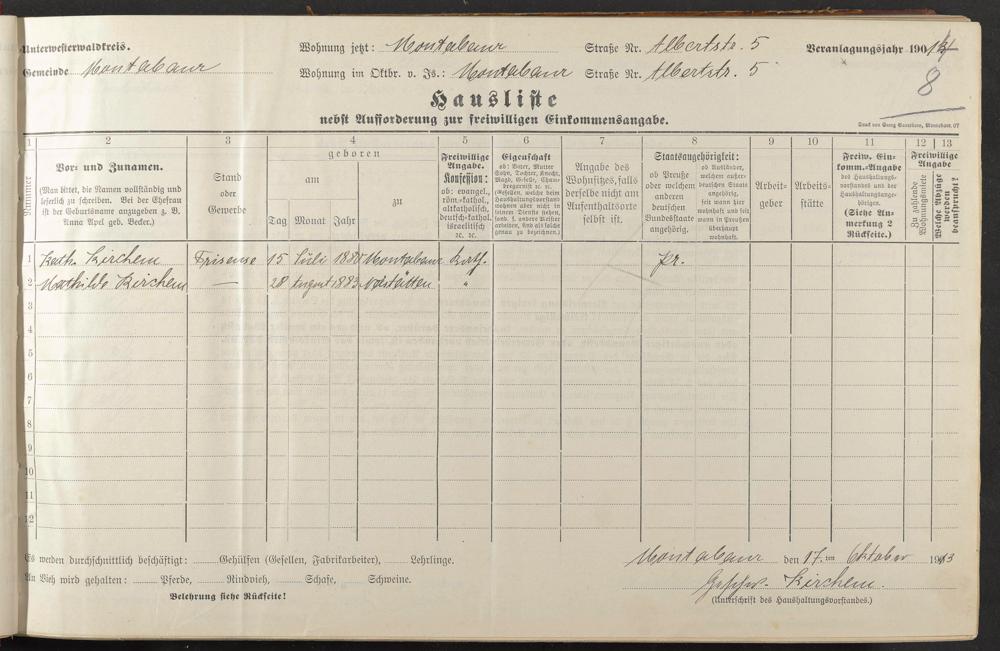 Unterwesterwaldkreis.
Wohnung jetzt: Montabaur Straße Nr. Albertstr. 5
Veranlagungsjahr 1914
Gemeinde Montabaur
Wohnung im Oktbr. v. Js.: Montabaur Straße Nr. Albertstr. 5
8
Hausliste
nebst Aufforderung zur freiwilligen Einkommensangabe.
1 2 3 4 5 6 7 8 9 10 11 12 13
Nummer
Vor- und Zunamen.
(Man bittet, die Namen vollständig und
leserlich zu schreiben. Bei der Ehefrau
ist der Geburtsname anzugeben z. B.
Anna Apel geb. Becker.)
Stand
oder
Gewerbe
geboren
am
zu
Tag Monat Jahr
Freiwillige
Angabe.
Konfession:
ob: evangel.,
röm.-kathol.,
altkatholisch,
deutsch-kathol.
israelitisch
ec. ec.
Eigenschaft
Angabe des
Wohnsitzes, falls
derselbe nicht am
Aufenthaltsorte
selbst ist.
Staatsangehörigkeit:
ob Preuße
oder welchem
anderen
deutschen
Bundesstaate
angehörig.
ob Ausländer,
welchem außer-
deutschen Staate
angehörig,
seit wann hier
wohnhaft und seit
wann in Preußen
überhaupt
wohnhaft.
Arbeit-
geber
Arbeits-
stätte
Freiw. Ein-
komm.-Angabe
des Haushaltungs-
vorstandes und der
Haushaltungsange-
hörigen.
(Siehe An-
merkung 2
Rückseite.)
Freiwillige
Angabe
Zu zahlende
Wohnungsmiete
Welche Abzüge
werden
beansprucht?
1 Kath. Kirchem Friseuse 15 Juli 1880 Montabaur Kath. Pr.
2 Mathilde Kirchem — 28 August 1883 Nastätten "
3
4
5
6
7
8
9
10
11
12
Es werden durchschnittlich beschäftigt: Gehülfen (Gesellen, Fabrikarbeiter). Lehrlinge.
Montabaur den 17.ten Oktober 1913
An Vieh wird gehalten: Pferde, Rindvieh, Schafe, Schweine.
Geschw. Kirchem.
Belehrung siehe Rückseite!
(Unterschrift des Haushaltungsvorstandes.)